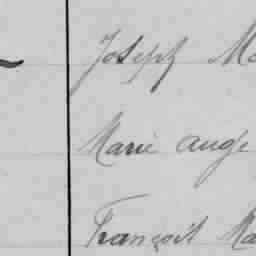 Joseph Ma
Marie ange
François Ma